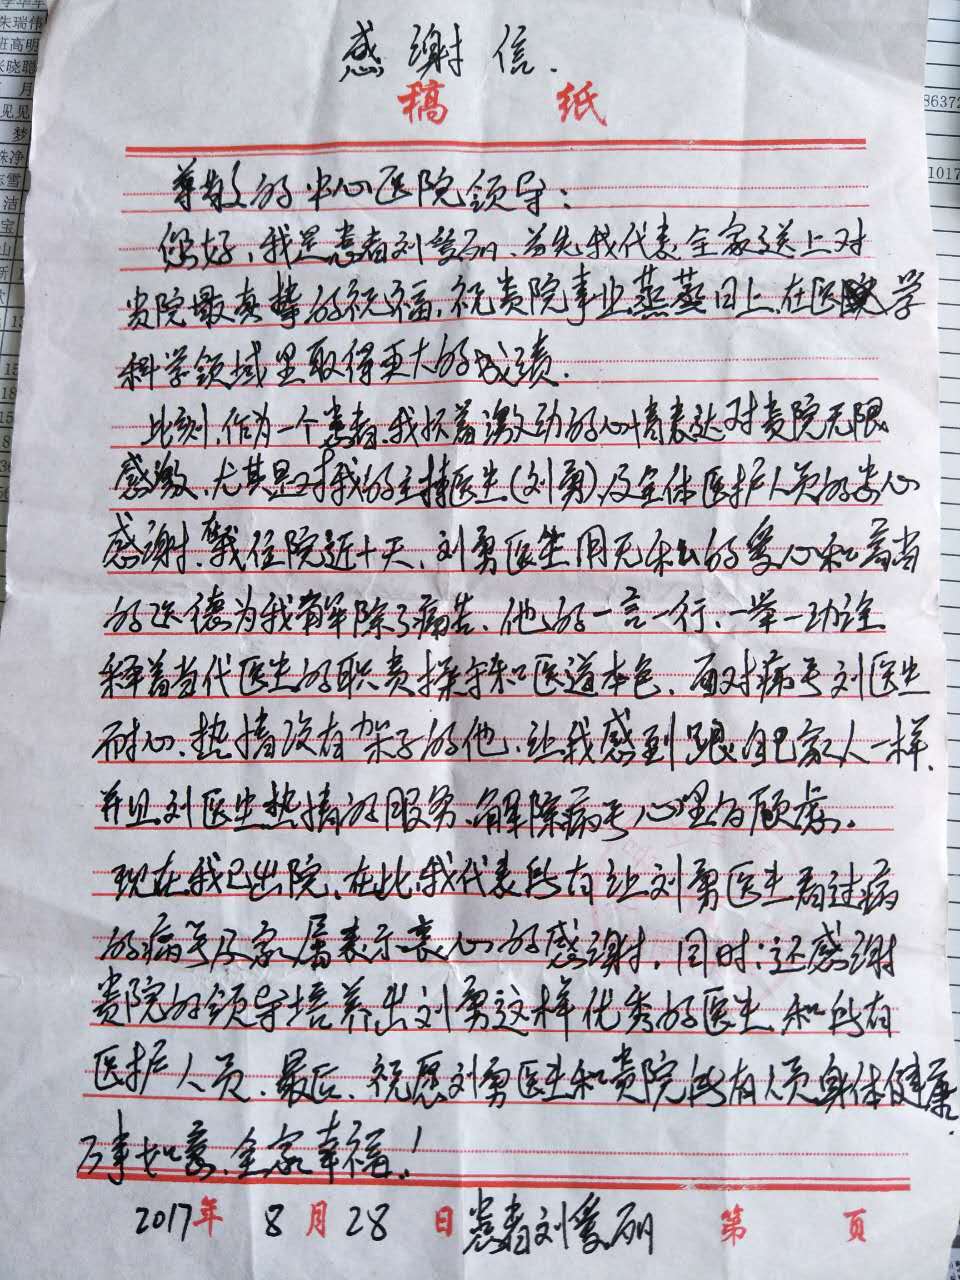 感谢信.
稿纸
尊敬的中心医院领导:
您好,我是患者刘爱丽、首先我代表全家送上对
贵院最真挚的祝福,祝贵院事业蒸蒸日上,在医学
科学领域里取得更大的成绩.
此刻,作为一个患者,我怀着激动的心情表达对贵院无限
感激、尤其是对我的主持医生(刘勇)及全体医护人员的衷心
感谢.在我住院近十天、刘勇医生用无私的爱心和高尚
的医德为我解除了病苦、他的一言一行、一举一动诠
释着当代医生的职责操守和医道本色.面对病号刘医生
耐心、热情没有架子的他、让我感到跟自己家人一样、
并且刘医生热情的服务、解除病号心里的顾虑.
现在我已出院、在此我代表所有让刘勇医生看过病
的病号及家属表示衷心的感谢.同时:还感谢
贵院的领导培养出刘勇这样优秀的医生、和所有
医护人员.最后、祝愿刘勇医生和贵院所有人员身体健康.
万事如意、全家幸福!
2017年8月28日患者刘爱丽 第 页
朱瑞伟
班高明
张晓聪
月
见见
梦
86372
1017